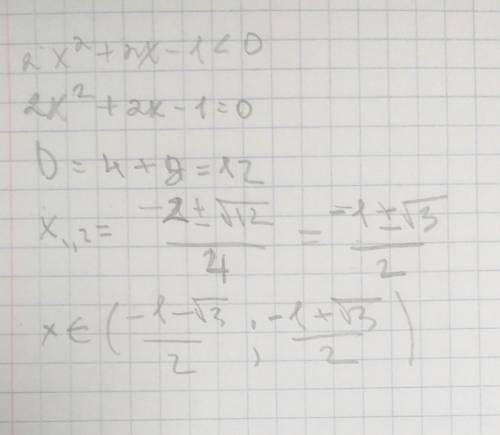 2x² + 2x - 1 < 0
2x² + 2x - 1 = 0
D = 4 + 8 = 12
x₁,₂ = (-2 ± √12)/4 = (-1 ± √3)/2
x ∈ ((-1 - √3)/2 ; (-1 + √3)/2)